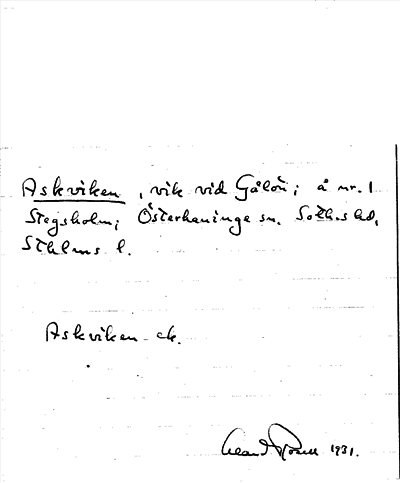 Askviken, vik vid Gålön; å nr. 1
Stegsholm; Österhaninge sn. Soth.s hd,
Sthlms l.
Askviken - ek.
1931.